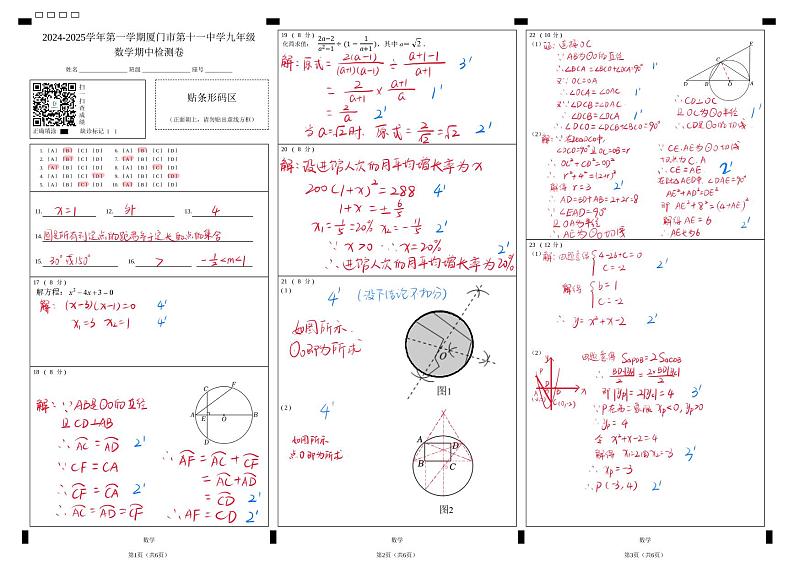 2024-2025学年第一学期厦门市第十一中学九年级
数学期中检测卷
姓名 班级 座号
扫
一
扫
查
成
绩
正确填涂 缺诊标记
贴条形码区
(正面朝上,请勿贴出虚线方框)
1. [A] [B] [C] [D] 6. [A] [B] [C] [D]
2. [A] [B] [C] [D] 7. [A] [B] [C] [D]
3. [A] [B] [C] [D] 8. [A] [B] [C] [D]
4. [A] [B] [C] [D] 9. [A] [B] [C] [D]
5. [A] [B] [C] [D] 10. [A] [B] [C] [D]
11. x=1 12. 外 13. 4
14. 圆是所有到定点的距离等于定长的点的集合
15. 30°或150° 16. > -1/2<m<1
17 (8 分)
解方程:x²-4x+3=0
解:(x-3)(x-1)=0 4'
x₁=3 x₂=1 4'
18 (8 分)
解:∵AB是⊙O的直径
且CD⊥AB
∴AC=AD 2'
∵CF=CA
∴CF=CA 2'
∴AC=AD=CF
∴AF=AC+CF
=AC+AD
=CD 2'
∴AF=CD 2'
C F
A E O B
D
19 (8 分)
化简求值:(2a-2)/(a²-1)÷(1-1/(a+1)),其中a=√2.
解:原式=2(a-1)/((a+1)(a-1))÷(a+1-1)/(a+1) 3'
=2/(a+1)×(a+1)/a 1'
=2/a 2'
当a=√2时,原式=2/√2=√2 2'
20 (8 分)
解:设进馆人次的月平均增长率为x
200(1+x)²=288 4'
1+x=±6/5
x₁=1/5=20% x₂=-11/5 2'
∵x>0 ∴x=20%
∴进馆人次的月平均增长率为20% 2'
21 (8 分)
(1)
4' (没下结论不扣分)
如图所示.
⊙O即为所求
O
图1
(2)
4'
如图所示
点O即为所求
A D
B C
图2
22 (10 分)
(1)解:连接OC
∵AB为⊙O的直径
∴∠BCA=∠BCO+∠OCA=90° 1'
又∵OC=OA
∴∠OCA=∠OAC 1'
又∵∠DCB=∠OAC
∴∠DCB=∠OCA 1'
∴∠DCO=∠DCB+∠BCO=90°
E
C
D B O A
∴CD⊥OC
且OC为⊙O半径 1'
∴CD是⊙O的切线
(2)
∠DCO=90°且OC=OB=r
∴OC²+CD²=OD²
∴r²+4²=(2+r)²
解得r=3 2'
∴AD=BD+AB=2+2r=8
∵∠EAD=90°
且OA为半径
∴AE为⊙O的切线
∵CE,AE为⊙O切线
切点为C,A
∴CE=AE 2'
在Rt△AED中,∠DAE=90°
AE²+AD²=DE²
即AE²+8²=(4+AE)²
解得AE=6
∴AE长为6 2'
23 (12 分)
(1)解:由题意得{4-2b+c=0
c=-2 2'
解得{b=1
c=-2
∴y=x²+x-2 2'
(2)
由题意得S△PDB=2S△CDB
即|yP|=2|yC|=4 3'
∵P在第二象限xP<0,yP>0
∴yP=4
令x²+x-2=4
解得x₁=2或x₂=-3 3'
∴xP=-3
∴P(-3,4) 2'
数学
第1页(共6页)
数学
第2页(共6页)
数学
第3页(共6页)